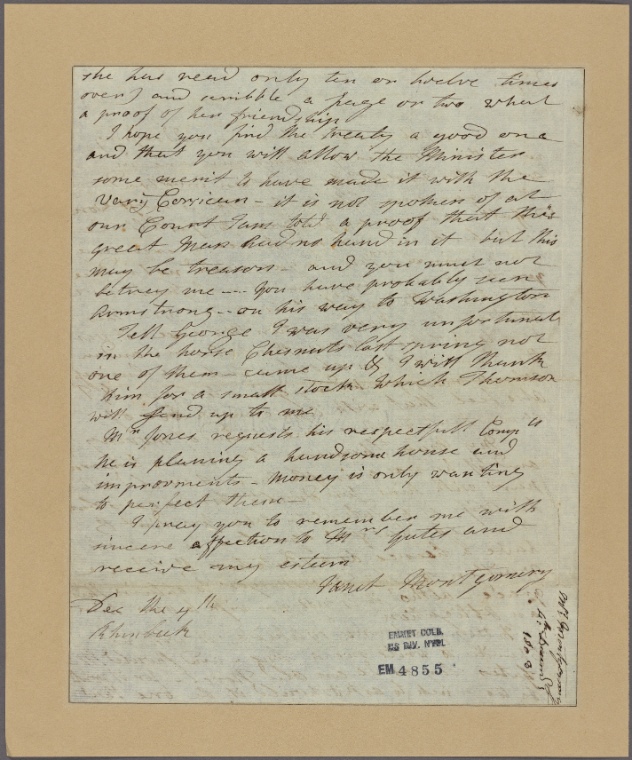 she has read only ten or twelve times
over) and scribble a page or two what
a proof of her friendship
I hope you find the treaty a good one
and that you will allow the Minister
some merit to have made it with the
Vary Corsican - it is not spoken of at
our Court I am told a proof that this
great Man had no hand in it but this
may be treason - and you must not
betray me -- You have probably seen
Armstrong - on his way to Washington
Tell George I was very unfortunate
in the horse Chesnuts last spring not
one of them came up & I will thank
him for a small stock which Thomson
will send up to me
Mr Jones requests his respectfull Compts
he is planing a handsome house and
improvments - money is only wanting
to perfect them -
I pray you to remember me with
sincere affection to Mrs Gates and
receive my esteem
Janet Montgomery
Dec the 4th
Rhinbeck
EMMET COLL.
MS DIV. NYPL
EM 4855
Mrs Montgomery
4 Decem
1803